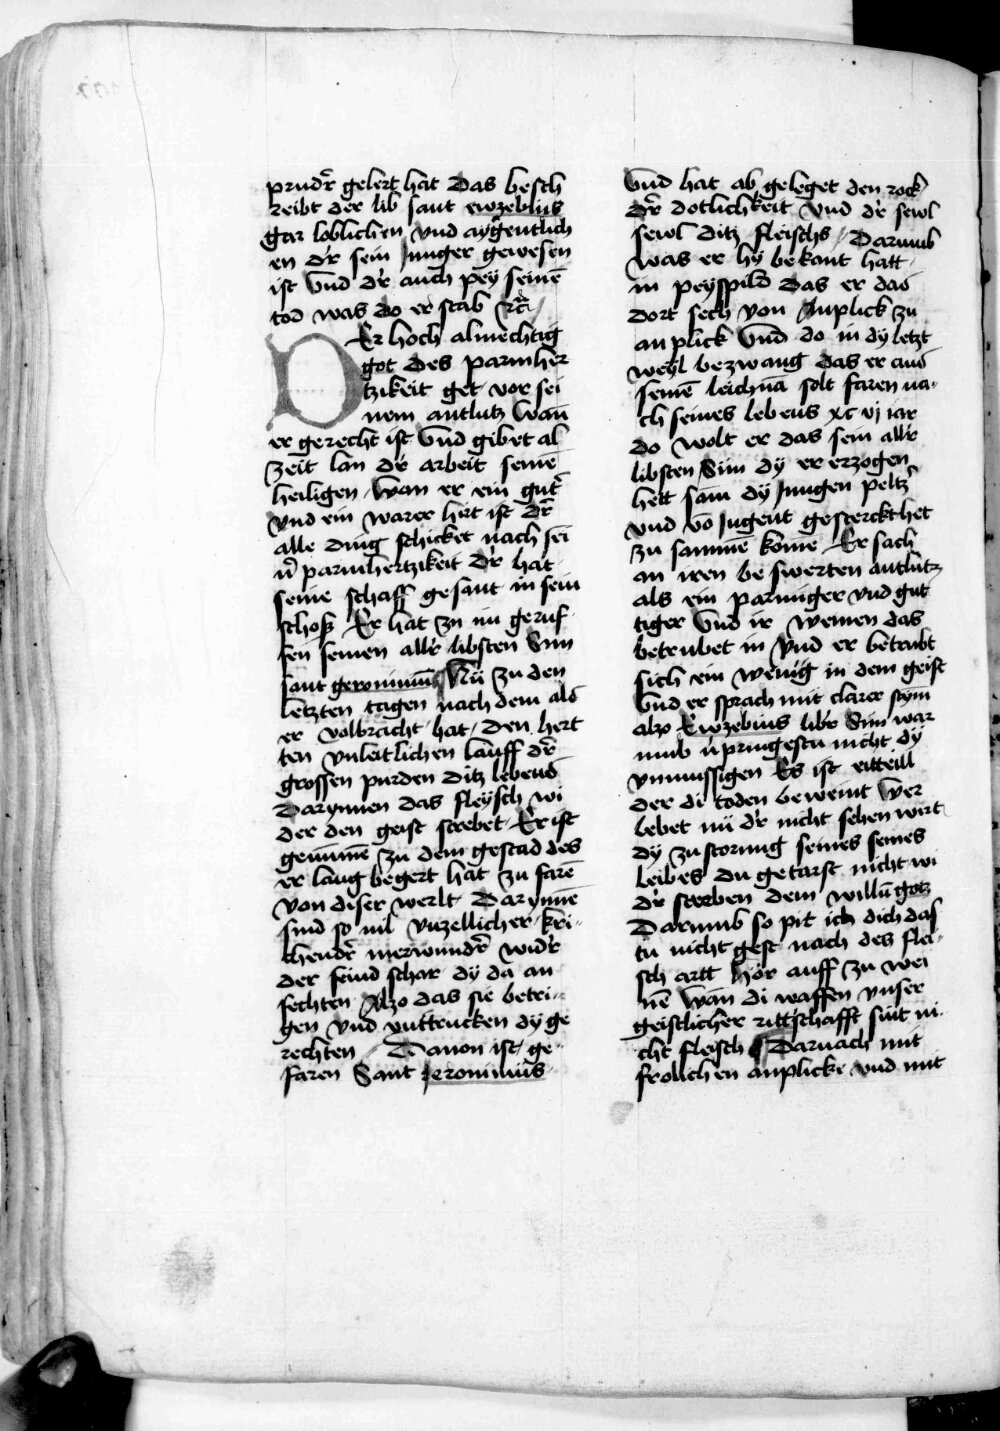 prudr̄ gelert hat Das besch
reibt der lib sant ewzebius
gar loblichen vnd aygentlich
en dr̄ sein Junger gewesen
ist vnd dr̄ auch pey seinē
tod was do er starb
Er hoch almechtig
got des parmher
tzikeit get vor sei
nem antlutz wan̄
er gerecht ist vnd gibet al
zeit lan dr̄ arbeit seinē
heiligen wan er ein gutr̄
vnd ein warer hirt ist dr̄
alle ding schicket nach sei
nr̄ parmhertzikeit dr̄ hat
seine schaff gesant in sein
schoß Er hat zu im geruf
fen seinen allr̄ libsten Sun
sant geronimū Nū zu den
letzten tagen nach dem als
er volbracht hat den hert
ten vnleitlichen lauff dr̄
grossen purden ditz lebens
Darynnen das fleysch wi
der den geist strebet Er ist
genūmē zu dem gestad des
er lang begert hat zu farē
von diser werlt Darynnē
sind so vil vnzellicher kri
chendr̄ merwundr̄ widr̄
der feind schar dy da an
fechten Alzo das sie betri
gen vnd vnttrucken dy ge
rechten Dauon ist ge
faren Sant Jeronimus
vnd hat ab geleget den rock
dr̄ dotlichkeit vnd dr̄ sewl
sewl ditz fleischs Darumb
was er hy bekant hatt
in peyspild das er das
dort sech von Anplick zu
anplick vnd do in dy letzt
weyl bezwang das er aus
seinē leichnā solt faren na
ch seines lebens xc vj iar
do wolt er das sein allr̄
libsten Sun dy er erzogen
hett sam dy Jungen peltzr̄
vnd vō Jugent gesterckt het
zu samnē komē Er sach
an iren beswerten antlutz
als ein parmiger vnd gut
tiger vnd ir weinen das
betrubet in vnd er betrubt
sich ein wenig in dem geist
vnd er sprach mit clarer stym
alzo Ewzebius libr̄ Sun war
umb nicht dy
vnnussigen Es ist eitteill
der di toden beweint wer
lebet nū dr̄ nicht sehen wirt
dy zustorung seines seines
leibes du getarst nicht wi
dr̄ streben dem willū gotz
Darumb so pit ich dich das
tu nicht gest nach des flei
sch artt hör auff zu wei
nē wan di waffen vnser
geistlicher rittschafft sint ni
cht fleisch Darnach mit
frolichen anplicke vnd mit